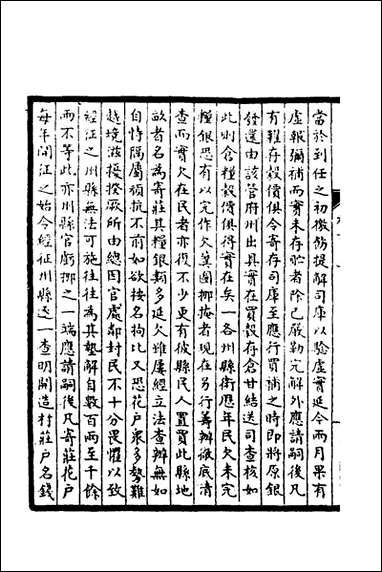 當於到任之初檄飭提解司庫以驗虛實延今兩月果有
虛報彌補而實未存貯者除已嚴勒完解外應請嗣後凡
有糧存穀價俱令寄存司庫至應行買補之時即將原銀
發還由該管府州出具實在買穀存倉甘結送司查核如
此則倉糧穀價俱得實在矣一各州縣衛應年民欠未完
糧銀恐有以完作欠冀圖挪掩者現在另行籌辦徹底清
查而實欠在民者亦復不少更有彼縣民人置買此縣地
畝者名為寄莊其糧銀類多延欠雖屢經立法查辦無如
自恃隔屬頑抗不前如欲按名拘比又恐花戶衆多勢難
越境滋擾揆厥所由總因官處鄰封民不十分畏懼以致
經征之州縣無法可施往往為其墊解自數百兩至千餘
而不等此亦州縣官虧挪之一端應請嗣後凡寄莊花戶
每年開征之始令經征州縣逐一查明開造村莊戶名錢